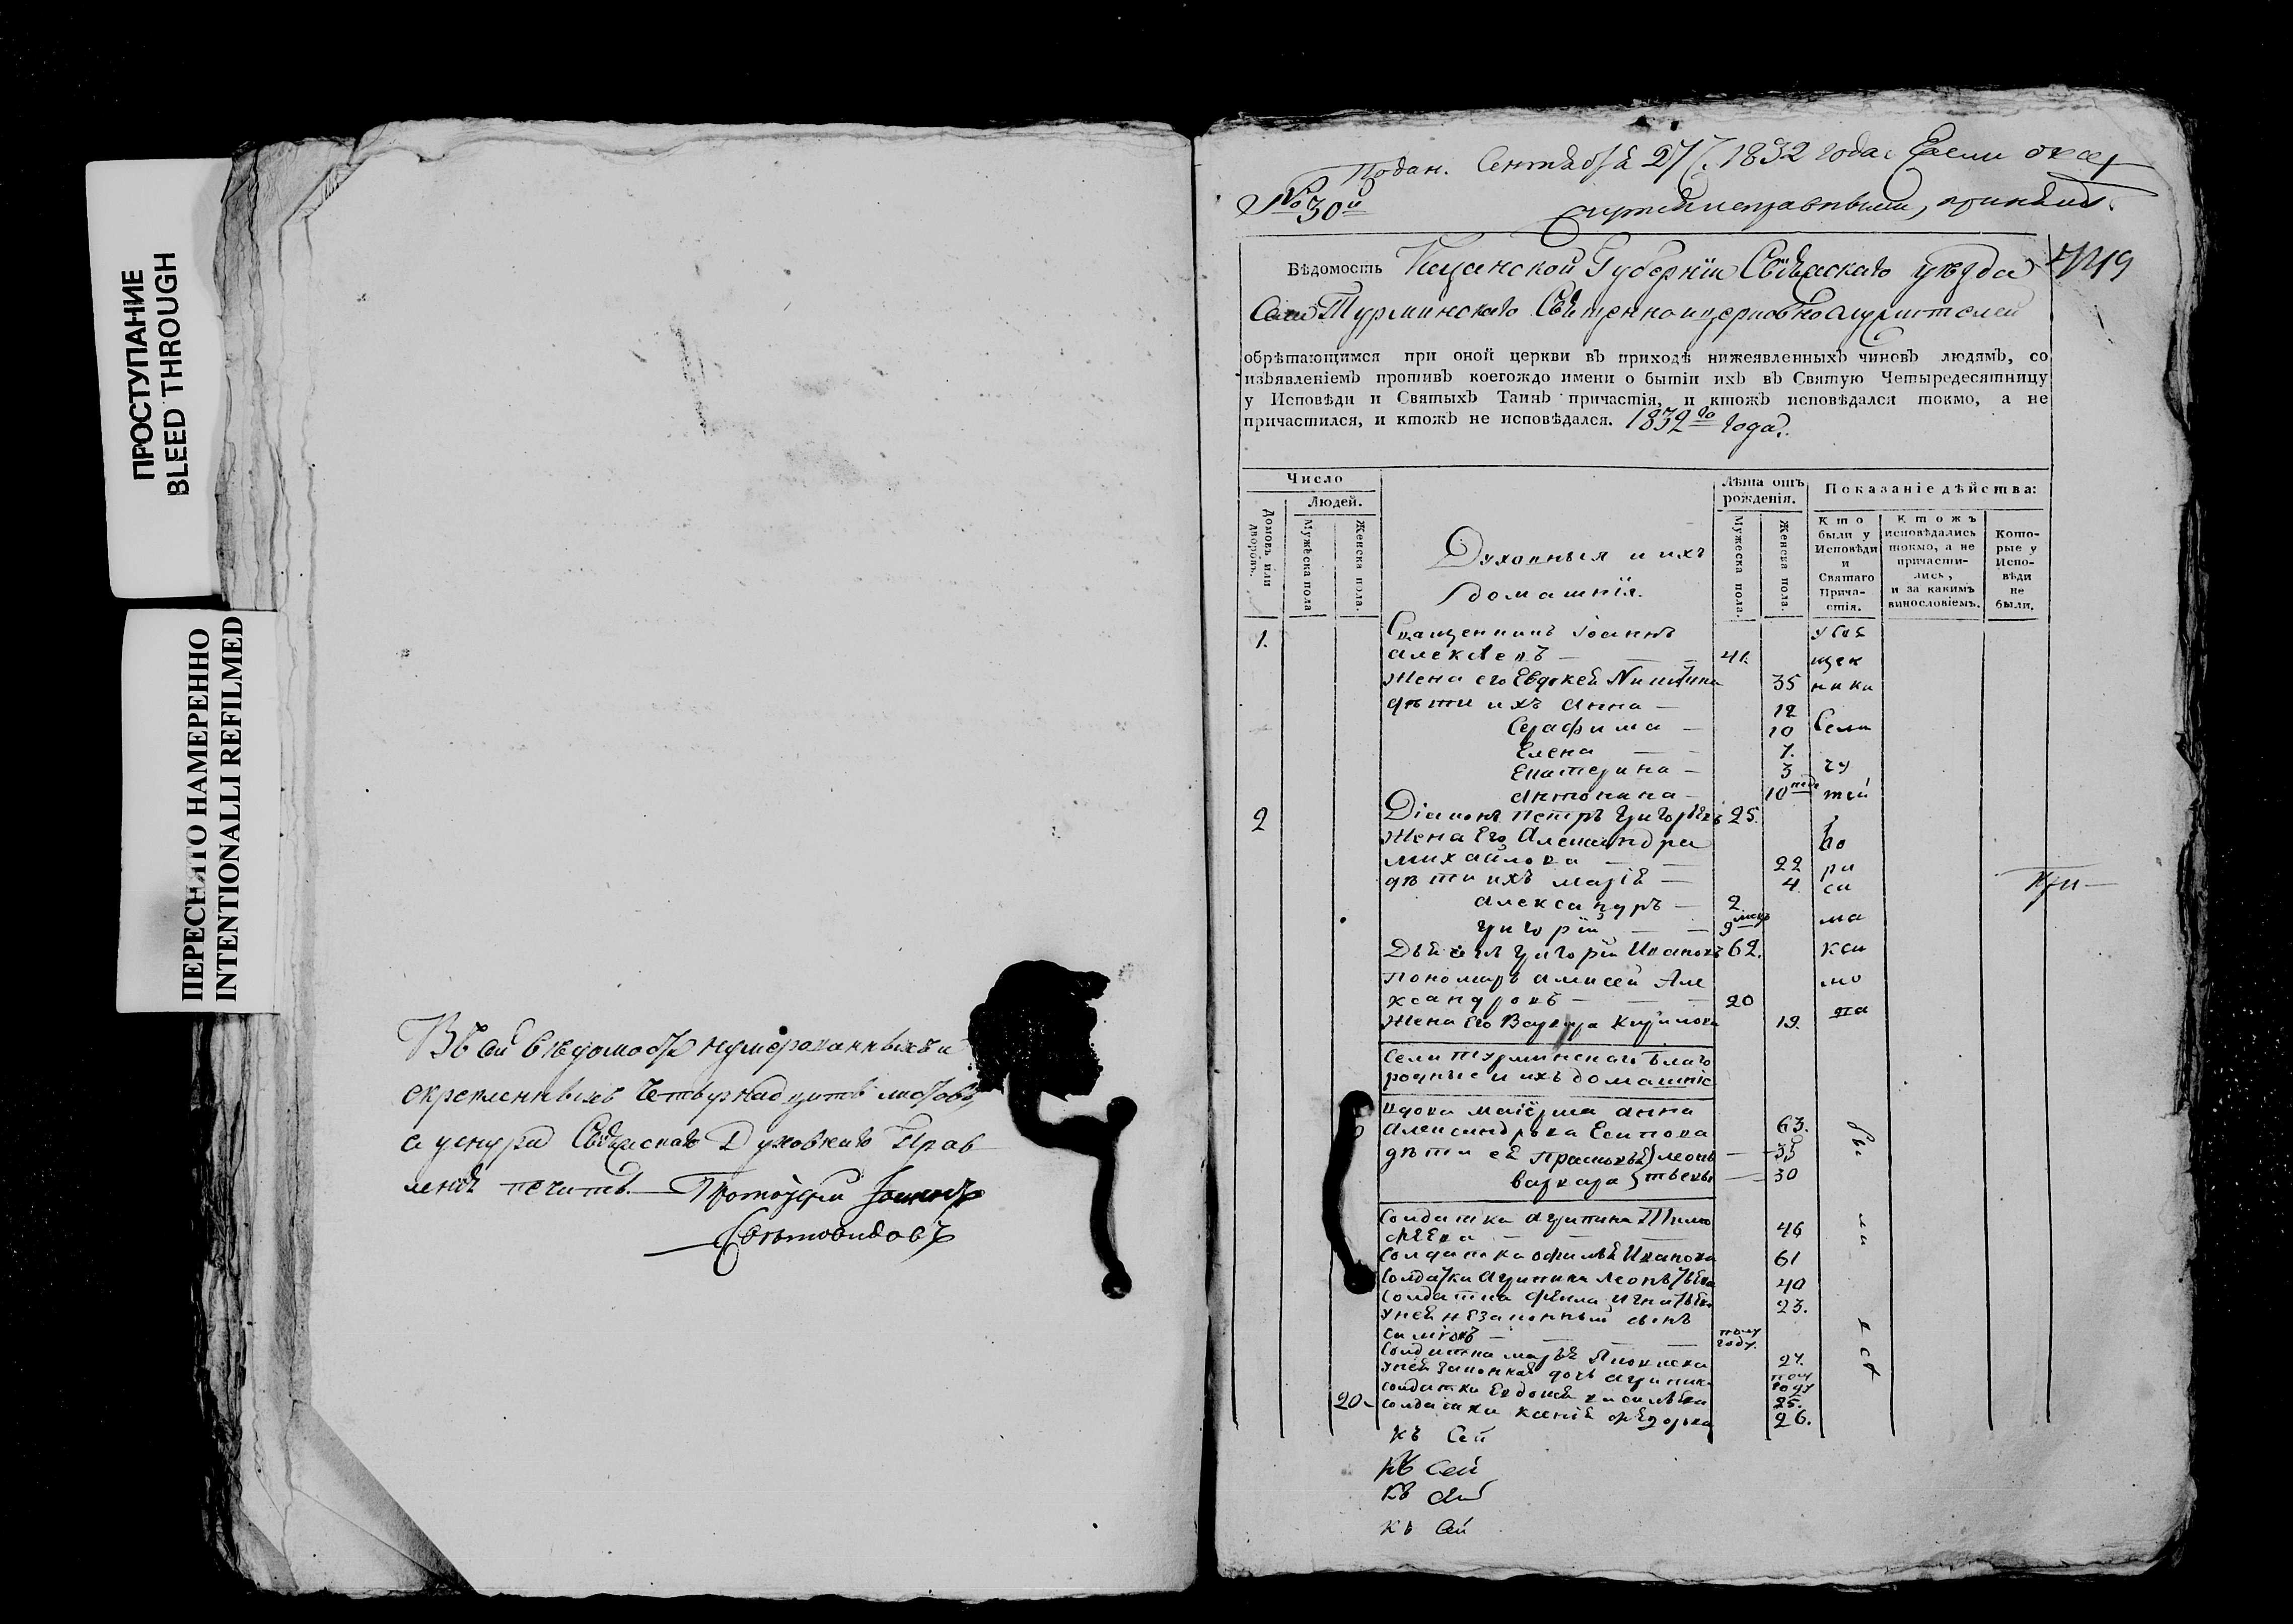 ПРОСТУПАНИЕ
BLEED THROUGH
ПЕРЕСНЯТО НАМЕРЕННО
INTENTIONALLI REFILMED
Въ сей ведомости нумерованныхъ и
скрепленныхъ четырнадцать листовъ,
а у снура Свіяжскаго Духовнаго Прав
ленія печать. Протоіерей Іоаннъ
Световидовъ
Подан. Сентября 27. 1832 года
№ 30й
Вѣдомость Казанской Губерніи Свіяжскаго уезда
Села Турминскаго Священноицерковнослужителей
обрѣтающимся при оной церкви въ приходѣ нижеявленныхъ чиновъ людямъ, со
изъявленіемъ противъ коегождо имени о бытіи ихъ въ Святую Четыредесятницу
у Исповѣди и Святыхъ Таинъ причастія, и ктожъ исповѣдался токмо, а не
причастился, и ктожъ не исповѣдался. 1832го года.
Число
Людей.
Домовъ или дворовъ.
Мужеска пола
Женска пола.
Духовныя и ихъ
домашнія.
Лѣта отъ рожденія.
Мужеска пола.
Женска пола.
Показаніе дѣйства:
Кто были у Исповѣди и Святаго Причастія.
Ктожъ исповѣдались токмо, а не причастились, и за какимъ винословіемъ.
Которые у Исповѣди не были.
1. Священникъ Іоаннъ
Алексеевъ — 41.
Жена его Евдокея Никитина 35
дѣти ихъ Анна — 12
Серафима — 10
Елена — 7.
Екатерина — 3
Антонина — 10
2 Діаконъ Петръ Григорьевъ 25.
Жена Его Александра
Михайлова — 22
дѣти ихъ Марія — 4
Александръ — 2
Григорій — 9
Григорій Ивановъ 62.
Пономарь Алексей Але
ксандровъ — 20
Жена Его Варвара Кирилова 19.
Села Турминскаго Благо
родныя и ихъ домашніе
вдова маіорша Анна
Александрова Есипова 63.
дѣти её Прасковья Леонь — 35
Варвара тьевы — 30
Солдатка Агрипина Тимо
феева — 46
Солдатка Офимья Иванова 61
Солдатка Агрипина Леонтьева 40
Солдатка Фёкла Игнатьева 23.
у ней незаконный сынъ
полу году.
Солдатка Марья 27.
у ней законная дочь Агрипина полу году
солдатка Евдокея Васильева 25.
20 солдатка Ксенія Федорова 26.
къ Сей
къ Сей
къ Сей
къ Сей